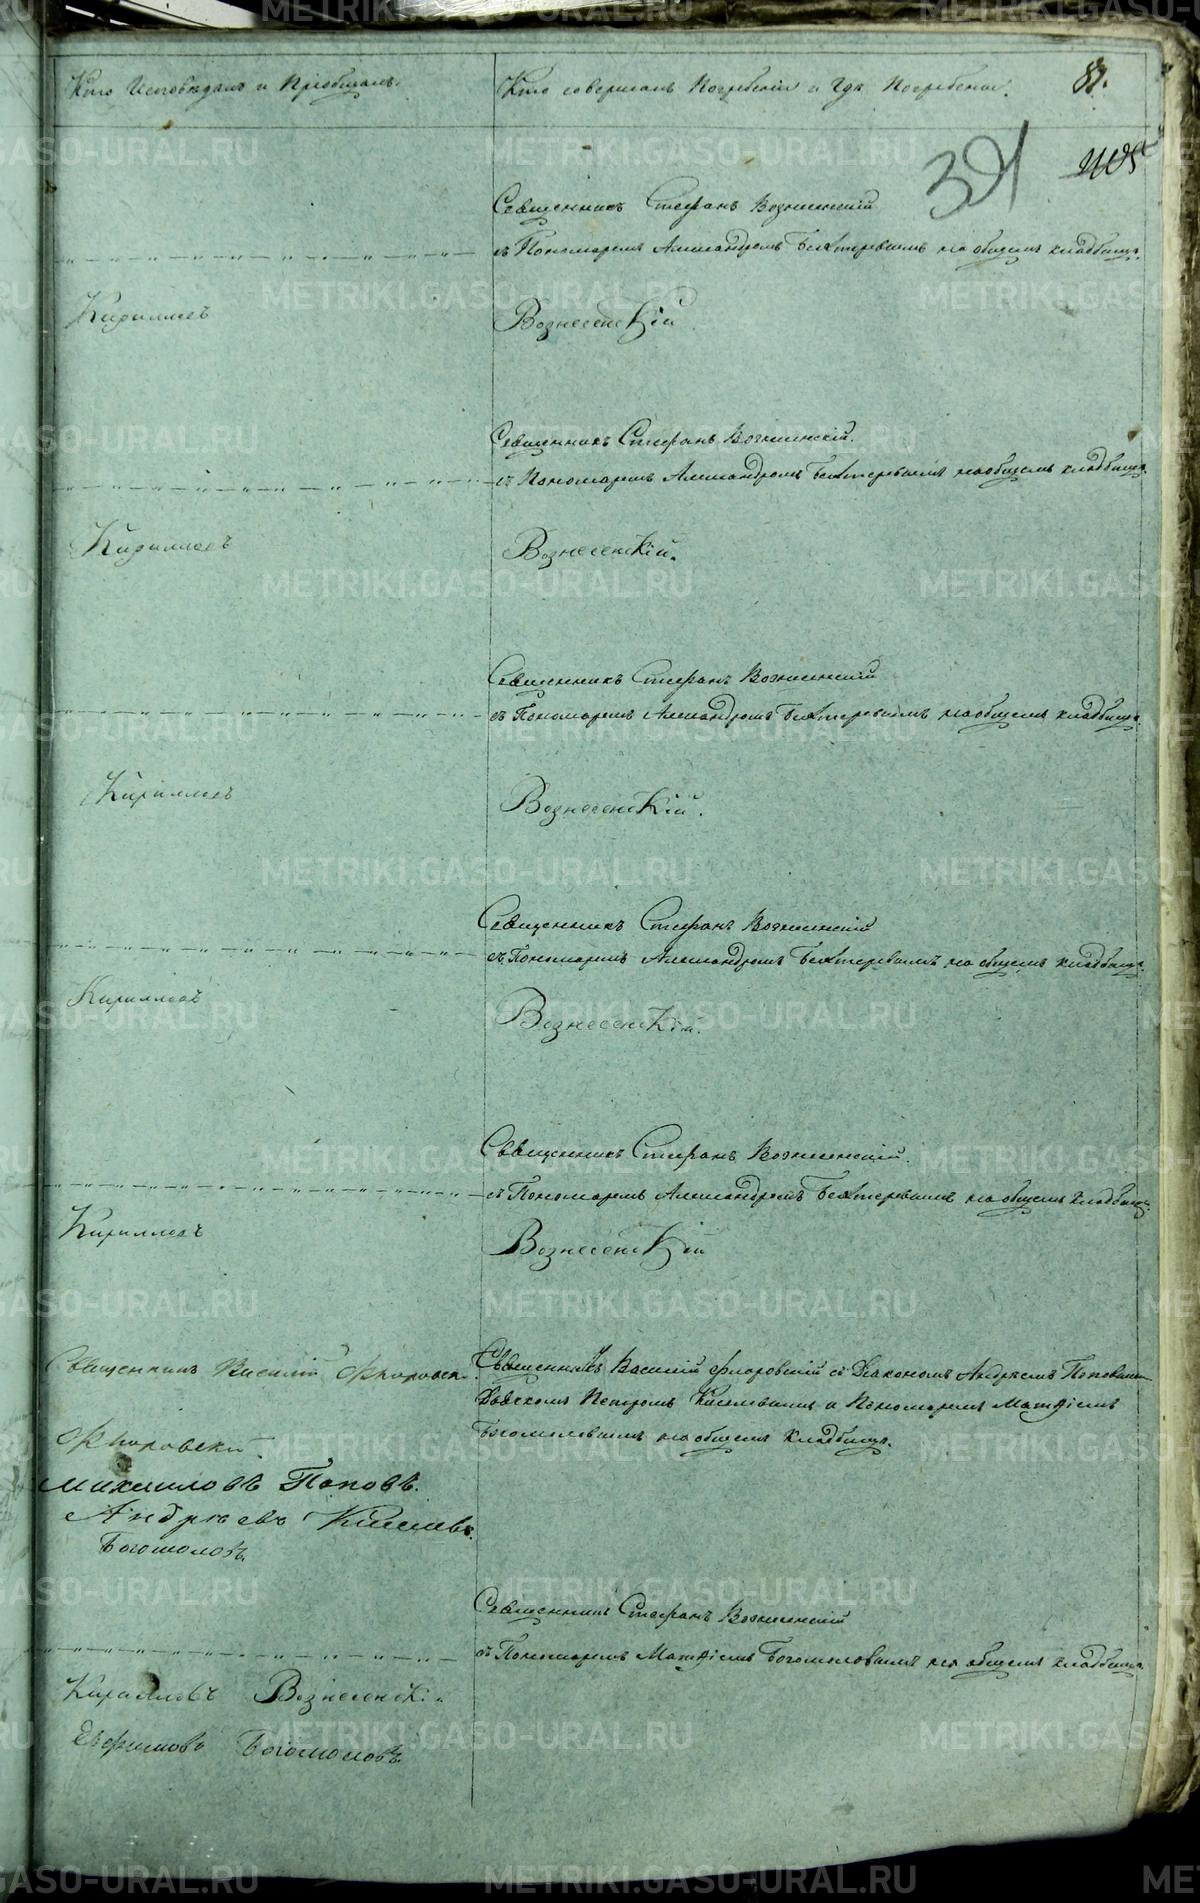 Кто Исповѣдалъ и Пріобщалъ.
Кто совершалъ Погребеніе и Гдѣ Погребены.
87.
391
Священникъ Стефанъ Вознесенскій
съ Пономаремъ Александромъ Бехтеревымъ на общемъ кладбищѣ.
Кириллов
Вознесенскій
Священникъ Стефанъ Вознесенскій.
съ Пономаремъ Александромъ Бехтеревымъ на общемъ кладбищѣ.
Кириллов
Вознесенскій.
Священникъ Стефанъ Вознесенскій
съ Пономаремъ Александромъ Бехтеревымъ на общемъ кладбищѣ.
Кириллов
Вознесенскій.
Священникъ Стефанъ Вознесенскій
съ Пономаремъ Александромъ Бехтеревымъ на общемъ кладбищѣ.
Кириллов
Вознесенскій.
Священникъ Стефанъ Вознесенскій.
съ Пономаремъ Александромъ Бехтеревымъ на общемъ кладбищѣ.
Кириллов
Вознесенскій
Священникъ Василій Флоровскі
Священникъ Василій Флоровскій съ Діакономъ Андреемъ Поповымъ
Дьячкомъ Петромъ Киселевымъ и Пономаремъ Матѳіемъ
Богомоловымъ на общемъ кладбищѣ.
Флоровскій
Михаиловъ Поповъ.
Андреевъ Киселевъ.
Богомоловъ.
Священникъ Стефанъ Вознесенскій
съ Пономаремъ Матѳіемъ Богомоловымъ на общемъ кладбищѣ.
Кириловъ Вознесенскій
Ефимовъ Богомоловъ.
METRIKI.GASO-URAL.RU